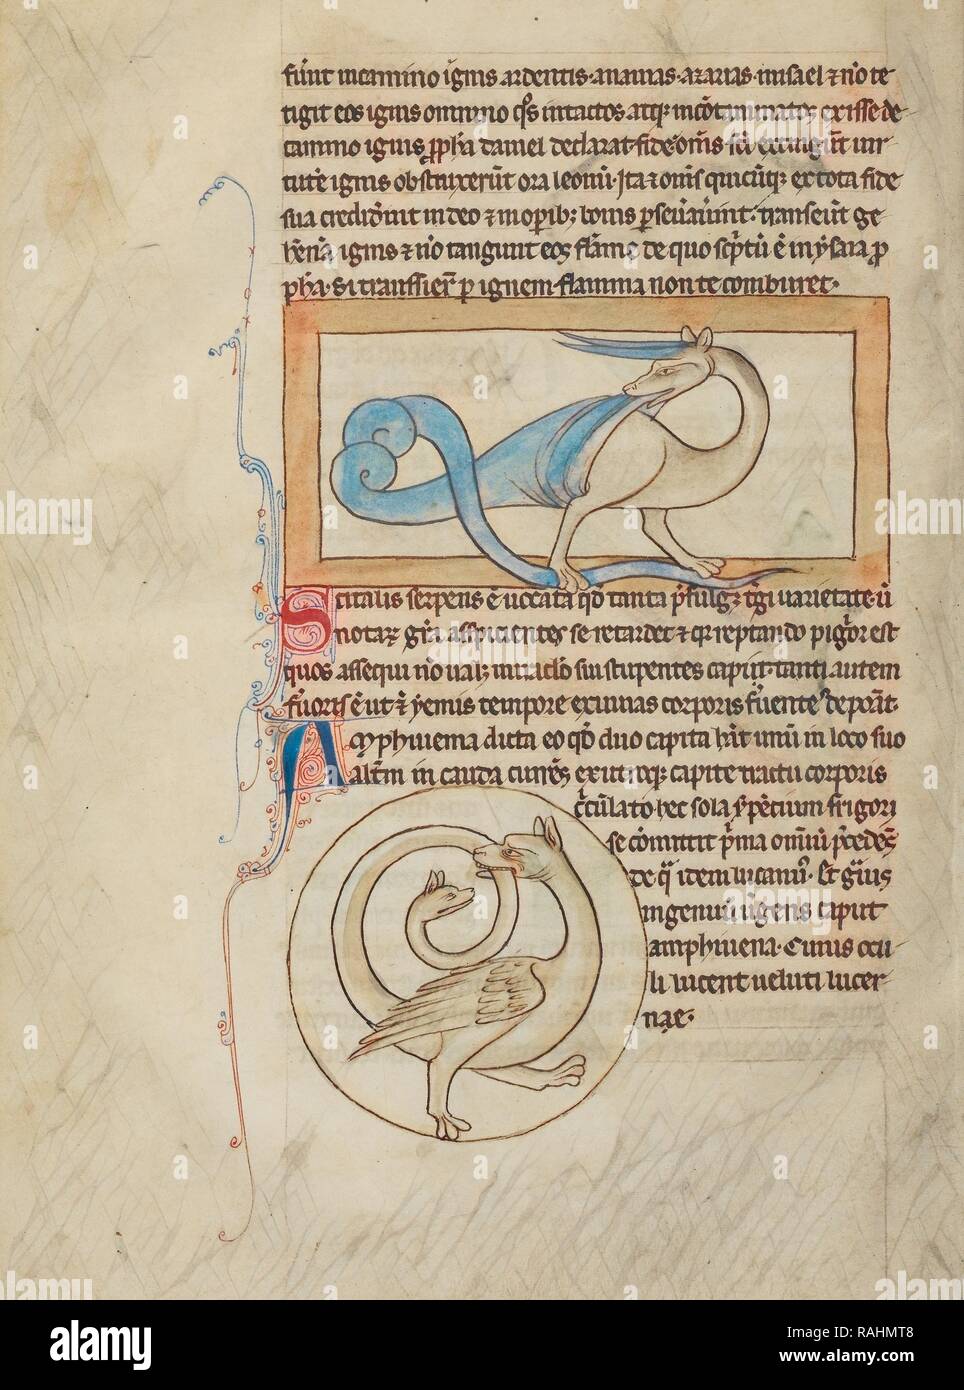 fûnt in camino ignis ardentis· ananias· azarias· misael ⁊ nô te
tigit eos ignis omnino qs intactos atq; incôtaminatos exisse de
camino ignis ꝓpha daniel declarat· fide oms sci extingût uir
tutê ignis obstruxerût ora leonû· Ita ⁊ oms quicûq; ex tota fide
sua crediderint in deo ⁊ in opib; bonis pseuauint· transeût ge
hennâ ignis ⁊ nô tangunt eos flâme de quo scptû ê in ysaia ꝓ
pha· Si transsieris p ignem flamma non te comburet·
Scitalis serpens ê uocata qd tanta pfulget tgi uarietate· ut
notaꝝ gra asspicientes se retardet ⁊ q reptando pigor est
quos assequi nô ualet miraclo sui stupentes capit· tanti autem
feruoris ê ut ⁊ yemis tempore exuuias corporis feruentis deponat·
Amphiuema dicta eo qd duo capita hat unû in loco suo
altm in cauda currens ex utroq; capite tractu corporis
circulato· hec sola serpentium frigori
se cômittit prima omniû procedens
de q̃ idem lucanus· Et grauis
in geminû uergens caput
amphiuena· Cuius ocu
li lucent ueluti lucer
nae·
a alamy
alamy
Image ID: RAHMT8
www.alamy.com